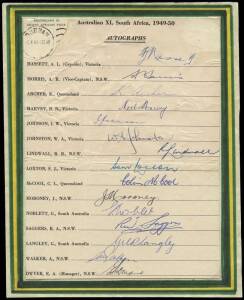 Australian XI, South Africa, 1949-50
AUTOGRAPHS
HASSETT, A. L. (Captain), Victoria
MORRIS, A. R. (Vice-Captain), N.S.W.
ARCHER, K., Queensland
HARVEY, R. N., Victoria Neil Harvey
JOHNSON, I. W., Victoria
JOHNSTON, W. A., Victoria
LINDWALL, R. R., N.S.W.
LOXTON, S. J., Victoria Sam Loxton
McCOOL, C. L., Queensland Colin McCool
MORONEY, J., N.S.W. J Moroney
NOBLET, G., South Australia G Noblet
SAGGERS, R. A., N.S.W. Ron Saggers
LANGLEY, G., South Australia G R Langley
WALKER, A. K., N.S.W.
DWYER, E. A. (Manager), N.S.W.